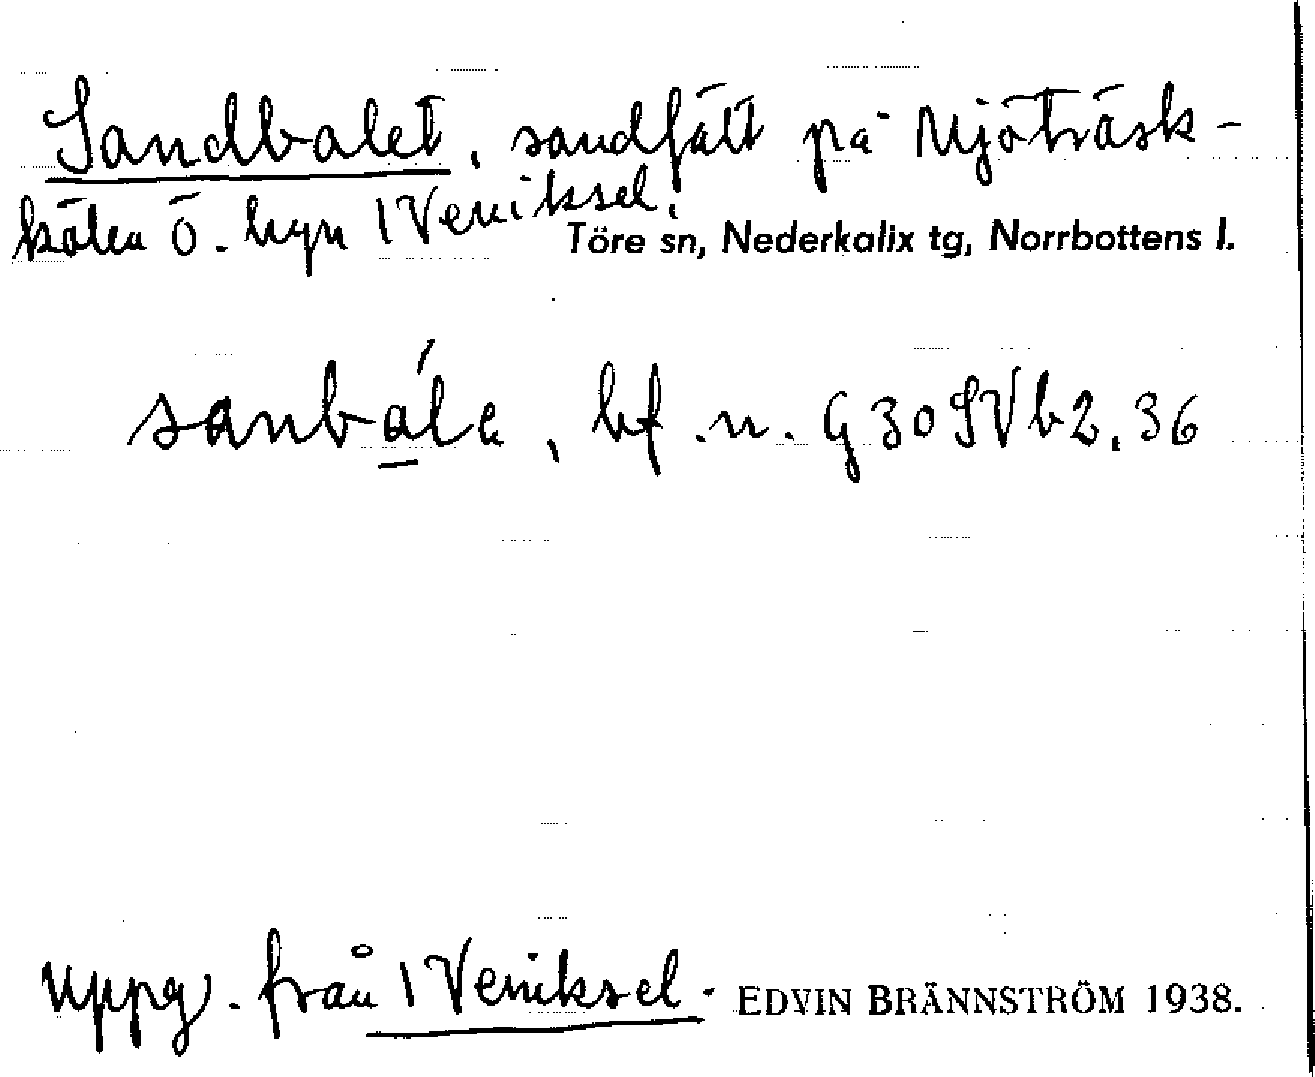 Sandbalet, sandfält på Mjöträsk-
kölen ö. hyn 1 Veniksel.
Töre sn, Nederkalix tg, Norrbottens l.
sanbále, bf. n. G 30 SV b 2, 36
uppg. från 1 Veniksel. EDVIN BRÄNNSTRÖM 1938.